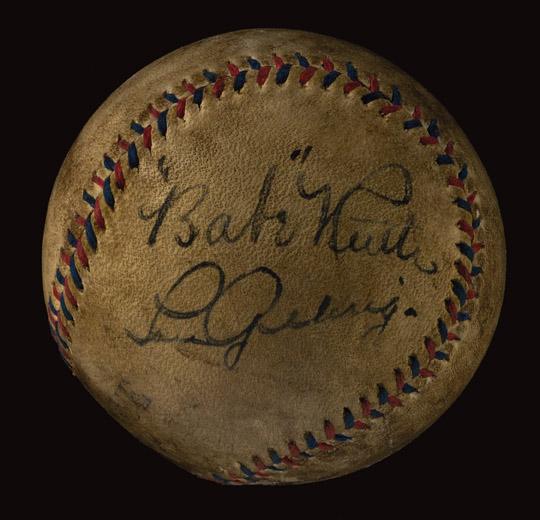 "Babe" Ruth
Lou Gehrig.